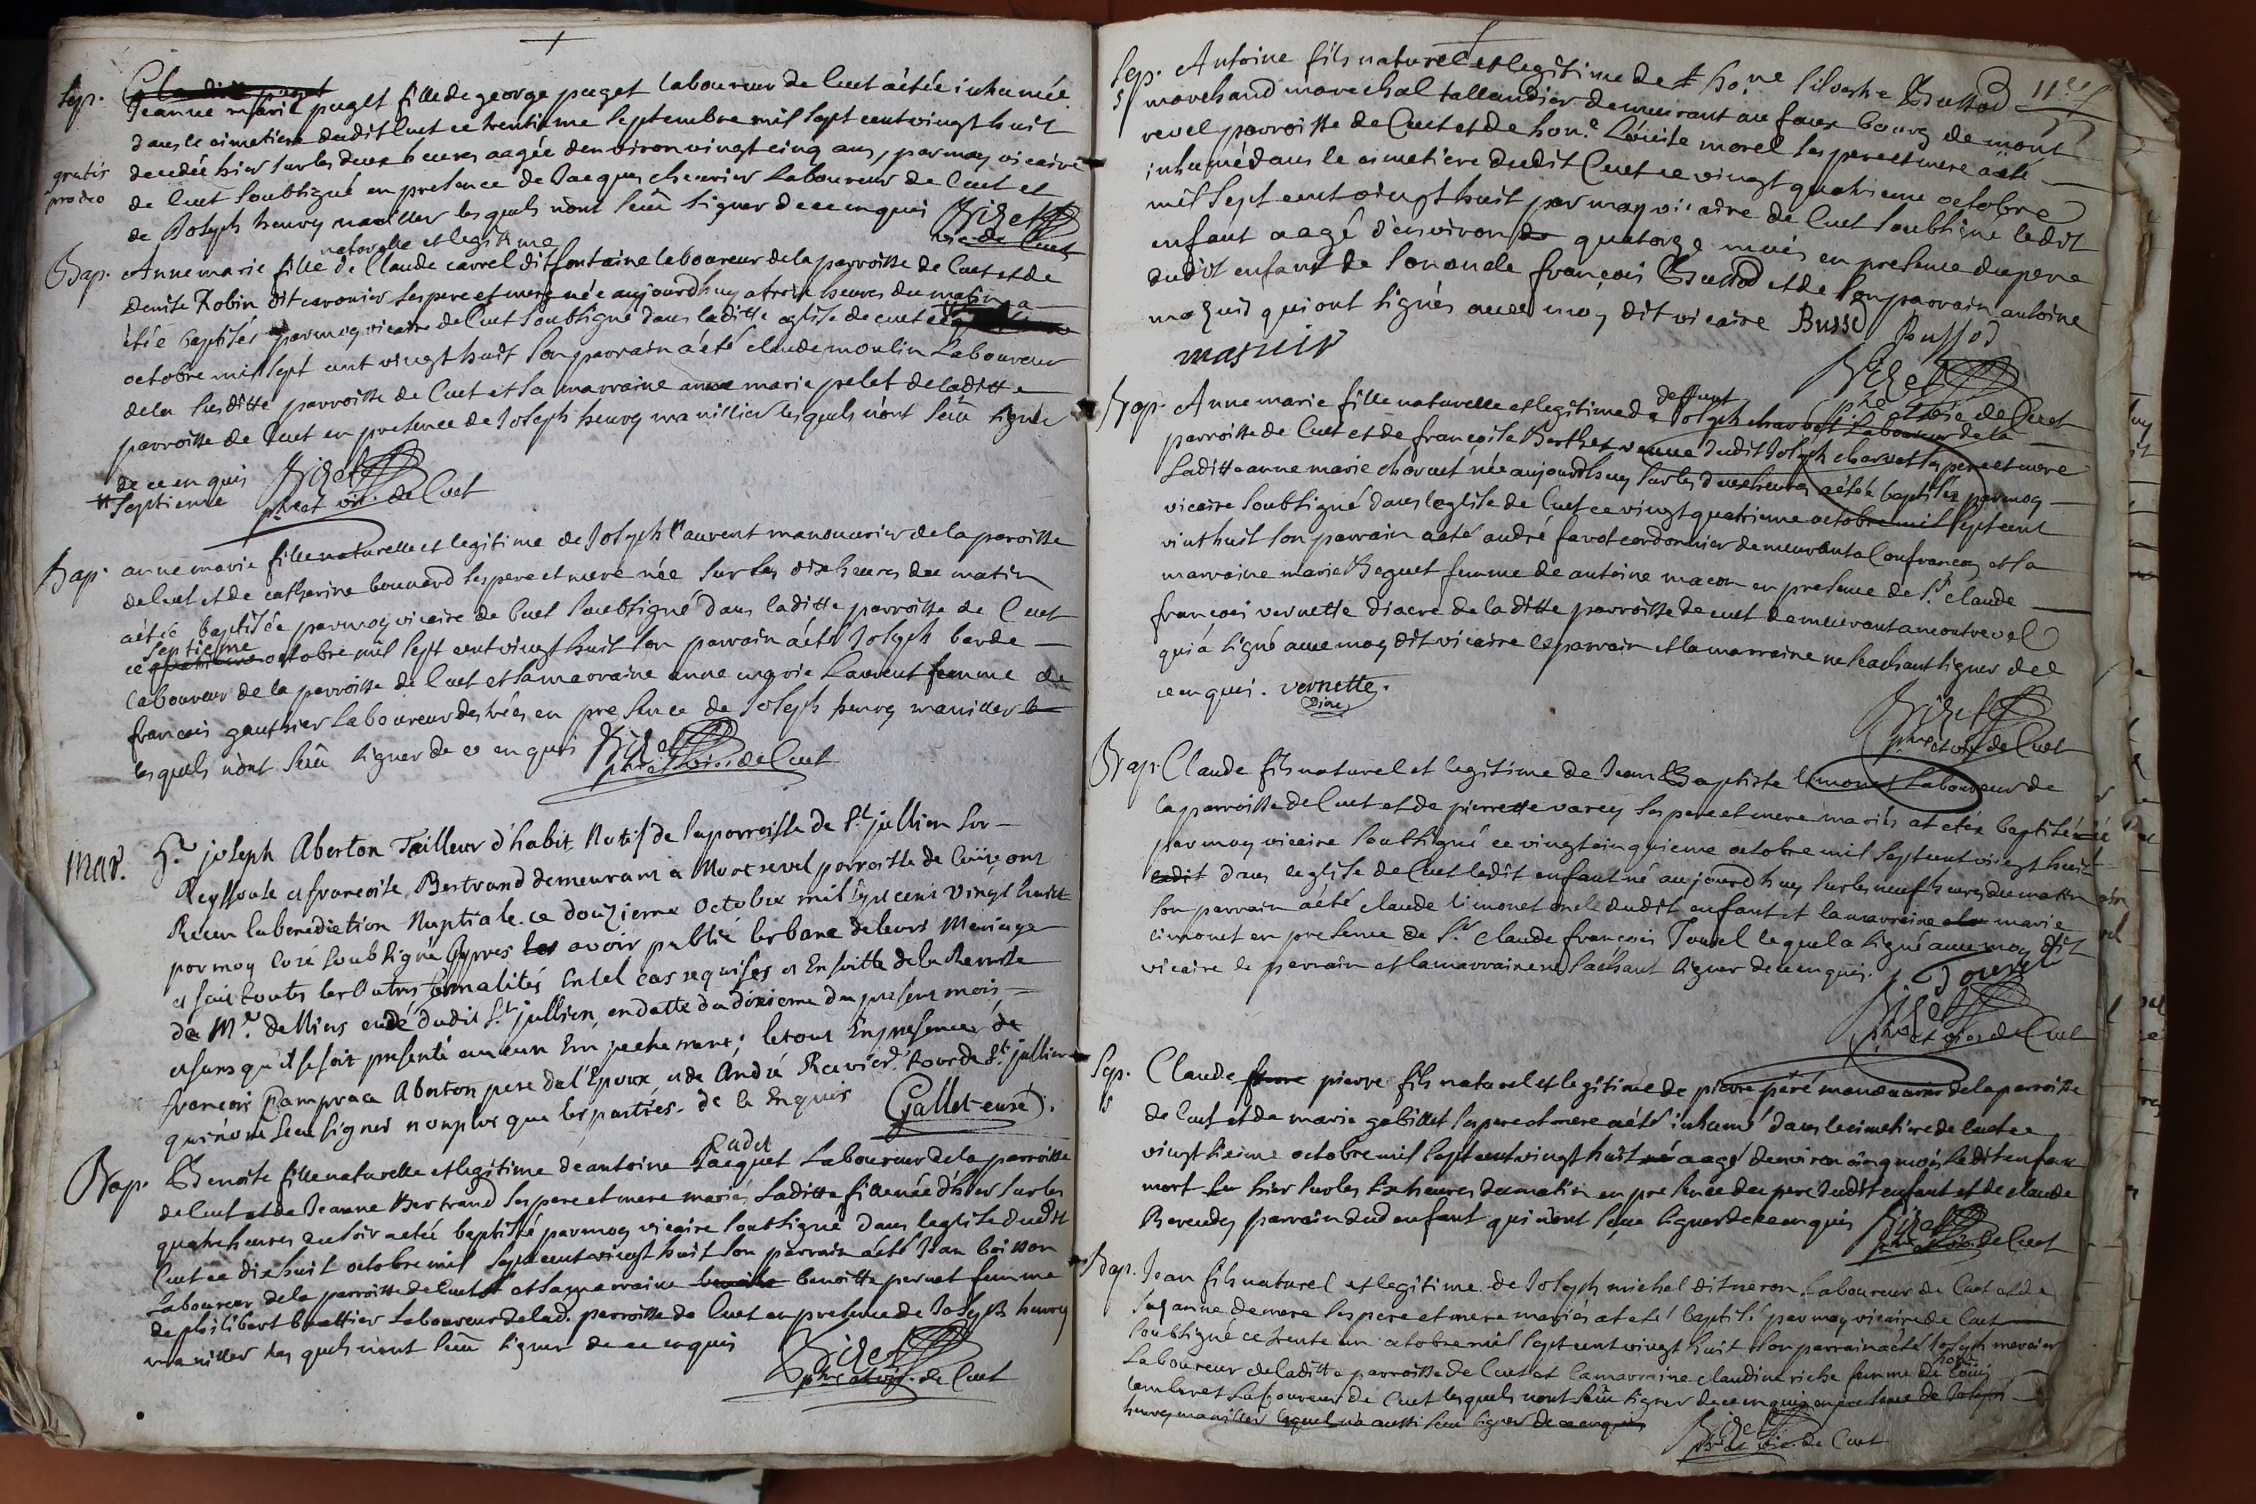 Sep. Jeanne marie puget fille de george puget laboureur de Cuet a étée inhumée
dans le cimetiere dudit Cuet ce trentieme septembre mil sept cent vingt huit
decedée hier sur les deux heures aagée denviron vingt cinq ans, par moy vicaire
gratis de Cuet soubsigné en presence de Jacques chevrier Laboureur de Cuet et
pro deo de Joseph henry maniller lesquels n'ont sceu signer de ce enquis
vic. de Cuet
naturelle et legitime
Bap. Anne marie fille de Claude carrel dit fontaine laboureur de la parroisse de Cuet et de
denise Robin dit caronier ses pere et mere née aujourdhuy a trois heures du matin a
étée baptisée par moy vicaire de Cuet soubsigné dans laditte eglise de cuet ce
octobre mil sept cent vingt huit son parrain a été claude moulin Laboureur
de la susditte parroisse de Cuet et sa marraine anne marie pelet de laditte
parroisse de Cuet en presence de Joseph henry manillier lesquels n'ont sceu signer
de ce enquis
septieme ptre et vic. de Cuet
Bap. anne marie fille naturelle et legitime de Joseph Laurent manouvrier de la paroisse
de Cuet et de catherine bouvard ses pere et mere née sur les dix heures du matin
a étée baptisée par moy vicaire de Cuet soubsigné dans laditte parroisse de Cuet
septieme
ce octobre mil sept cent vingt huit son parrain a été Joseph barde
laboureur de la parroisse de Cuet et sa marraine anne marie Laurent femme de
francois gauthier laboureur en presence de Joseph henry maniller
lesquels n'ont sceu signer de ce enquis
ptre et vic. de Cuet
Mar. Sr. joseph Aberton Tailleur d'habit Natif de la parroisse de St. jullien sur
Reyssouse et francoise Bertrand demeurant a Montrevel parroisse de Cuet ont
Receu la benediction Nuptiale ce douzieme octobre mil sept cent vingt huit
par moy curé soubsigné appres avoir publié les bans de leurs Mariage
et fait toutes les autres formalités en tel cas requises et ensuitte de la Remise
de Mr. curé dudit St. jullien, en datte du dixieme du present mois
et sans qu'il se soit presenté aucun Empechement; le tout En presence de
francois Aberton pere de l'Epoux et de André Ravier de St. jullien
qui n'ont sceu signer non plus que les parties. de ce Enquis Gallet curé.
Cadet
Bap. Benoite fille naturelle et legitime de antoine Pacquet Laboureur de la parroisse
de Cuet et de Jeanne Bertrand ses pere et mere mariés Laditte fille née d'hier sur les
quatre heures du soir a etée baptisé par moy vicaire soubsigné dans leglise dudit
Cuet ce dix huit octobre mil sept cent vingt huit son parrain a été Jean boisson
Laboureur de la parroisse de Cuet et sa marraine benoitte pernet femme
de philibert Laboureur de lad. parroisse de Cuet en presence de Joseph henry
maniller lesquels n'ont sceu signer de ce enquis
ptre et vic. de Cuet
11e
Sep. Antoine fils naturel et legitime de hone. silvestre Bussod
marchand marechal tallandier demeurant au faux bourg de mont
revel parroisse de Cuet et de hone. Louise morel ses pere et mere a été
inhumé dans le cimetiere dudit Cuet ce vingt quatrieme octobre
mil sept cent vingt huit par moy vicaire de Cuet soubsigné ledit
enfant aagé d'environ quatorze mois en presence du pere
dudit enfant de son oncle francois Bussod et de son parrain antoine
mazuir qui ont signés avec moy dit vicaire Bussod Bussod
mazuir
ptre et vic. de Cuet
deffunt
Bap. Anne marie fille naturelle et legitime de Joseph charvet Laboureur de la
parroisse de Cuet et de françoise Berthet veuve dudit Joseph charvet ses pere et mere
Laditte anne marie charvet née aujourdhuy sur les deux heures a étée baptisée par moy
vicaire soubsigné dans l'eglise de Cuet ce vingt quatrieme octobre mil sept cent
vint huit son parrain a été andré favot cordonnier demeurant a Confrancon et sa
marraine marie Beguet femme de antoine macon en presence de Sr. claude
françois vernette diacre de la ditte parroisse de cuet demeurant a montrevel
qui a signé avec moy dit vicaire le parrain et la marraine ne sachant signer de
ce enquis. vernette.
Diacre
ptre et vic. de Cuet
Bap. Claude fils naturel et legitime de Jean Baptiste limonet Laboureur de
la parroisse de Cuet et de pierrette varey ses pere et mere mariés at etée baptisé
par moy vicaire soubsigné ce vingt cinquieme octobre mil sept cent vingt huit
dans leglise de Cuet ledit enfant né aujourdhuy sur les neuf heures du matin
son parrain a été claude limonet oncle dudit enfant et la marraine marie
limonet en presence de Sr. claude francois Tourel lequel a signé avec moy dit
vicaire le parrain et la marraine ne sachant signer de ce enquis.
ptre et vic. de Cuet
Sep. Claude pierre fils naturel et legitime de pierre peré manouvrier de la parroisse
de Cuet et de marie gabillet ses pere et mere a été inhumé dans le cimetiere de Cuet ce
vingt sixieme octobre mil sept cent vingt huit aagé denviron cinq mois ledit enfant
mort hier sur les six heures du matin en presence du pere dudit enfant et de claude
parrain dud enfant qui n'ont sceu signer de ce enquis
ptre et vic. de Cuet
Bap. Jean fils naturel et legitime de Joseph michel dit neron Laboureur de Cuet et de
Suzanne demere ses pere et mere mariés at eté baptisé par moy vicaire de Cuet
soubsigné ce trente un octobre mil sept cent vingt huit son parrain a été Joseph mercier
Laboureur de laditte parroisse de Cuet et la marraine claudine riche femme de Louis
Laboureur de Cuet lesquels n'ont sceu signer de ce enquis en presence de Joseph
henry maniller lequel n'a aussi sceu signer de ce enquis
ptre et vic. de Cuet